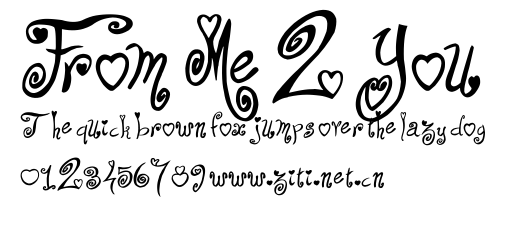 From Me 2 You
The quick brown fox jumps over the lazy dog
0123456789 www.ziti.net.cn